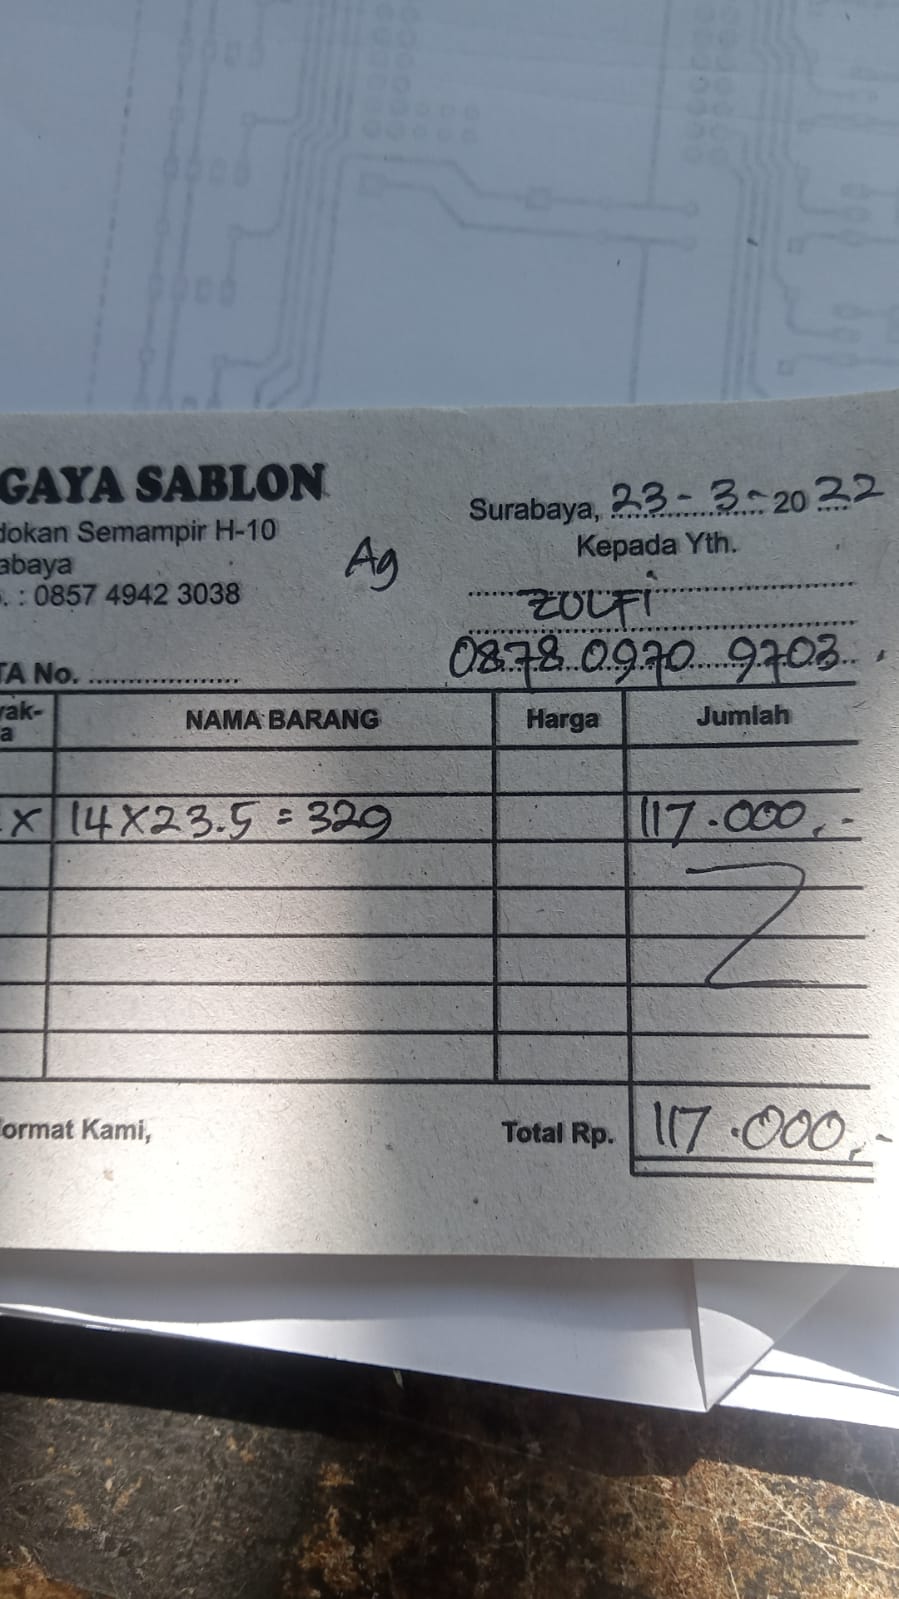 GAYA SABLON
dokan Semampir H-10
abaya
. : 0857 4942 3038
Ag
Surabaya, 23 - 3 - 20 22
Kepada Yth.
ZULFI
0878 0970 9703
TA No. ....................
yak-
a
NAMA BARANG
Harga
Jumlah
X
14 X 23.5 = 329
117.000,-
Format Kami,
Total Rp.
117.000,-